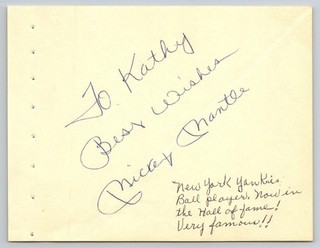 To Kathy
Best Wishes
Mickey Mantle
New York Yankies
Ball player. Now in
the Hall of fame!
Very famous!!